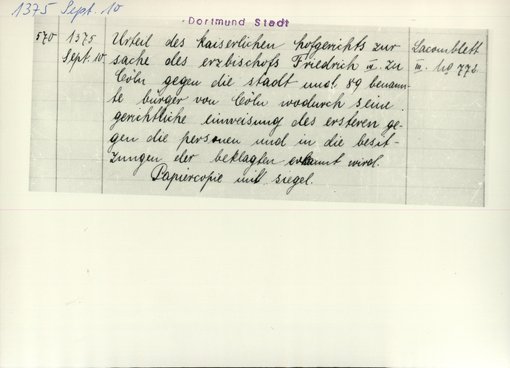 1375 Sept. 10
Dortmund Stadt
570 1375 Urteil des kaiserlichen hofgerichts zur Lacomblett
Sept. 10. sache des erzbischofs Friedrich zu III. No 772
Cöln gegen die stadt und 89 benann-
te bürger von Cöln wodurch seine
gerichtliche einweisung des ersteren ge-
gen die personen und in die besit-
zungen der beklagten erkannt wird.
Papiercopie mit siegel.